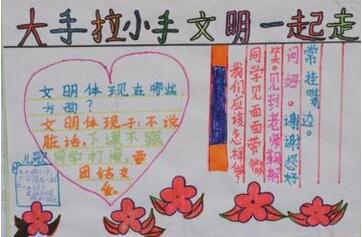 大手拉小手文明一起走
文明体现在哪些
方面？
文明体现于:不说
脏话,下课不跟
同学打闹,要
团结友
爱
儿歌
我们应该怎样做
同学见面面带微
笑。见到老师
问好。谢谢您好
常挂嘴边。